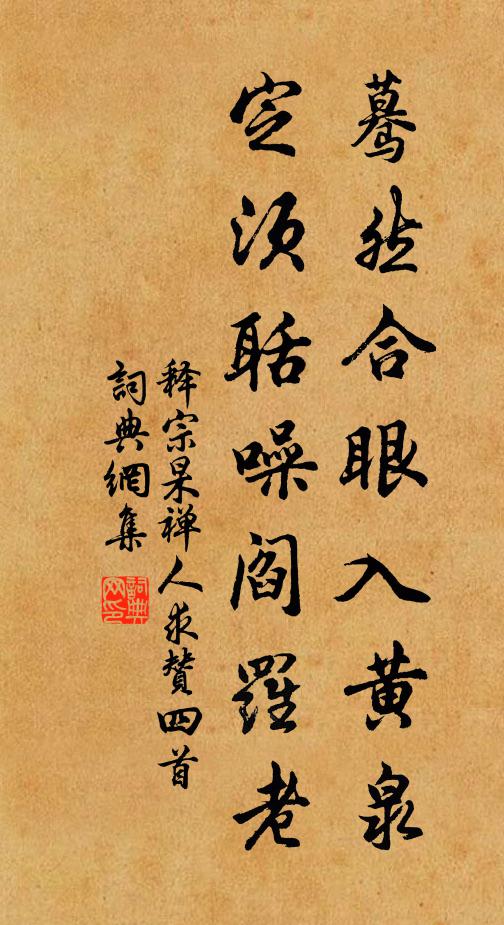 驀然合眼入黃泉
定須聒噪閻羅老
释宗杲禅人求赞四首
詞典網集
詞典網印